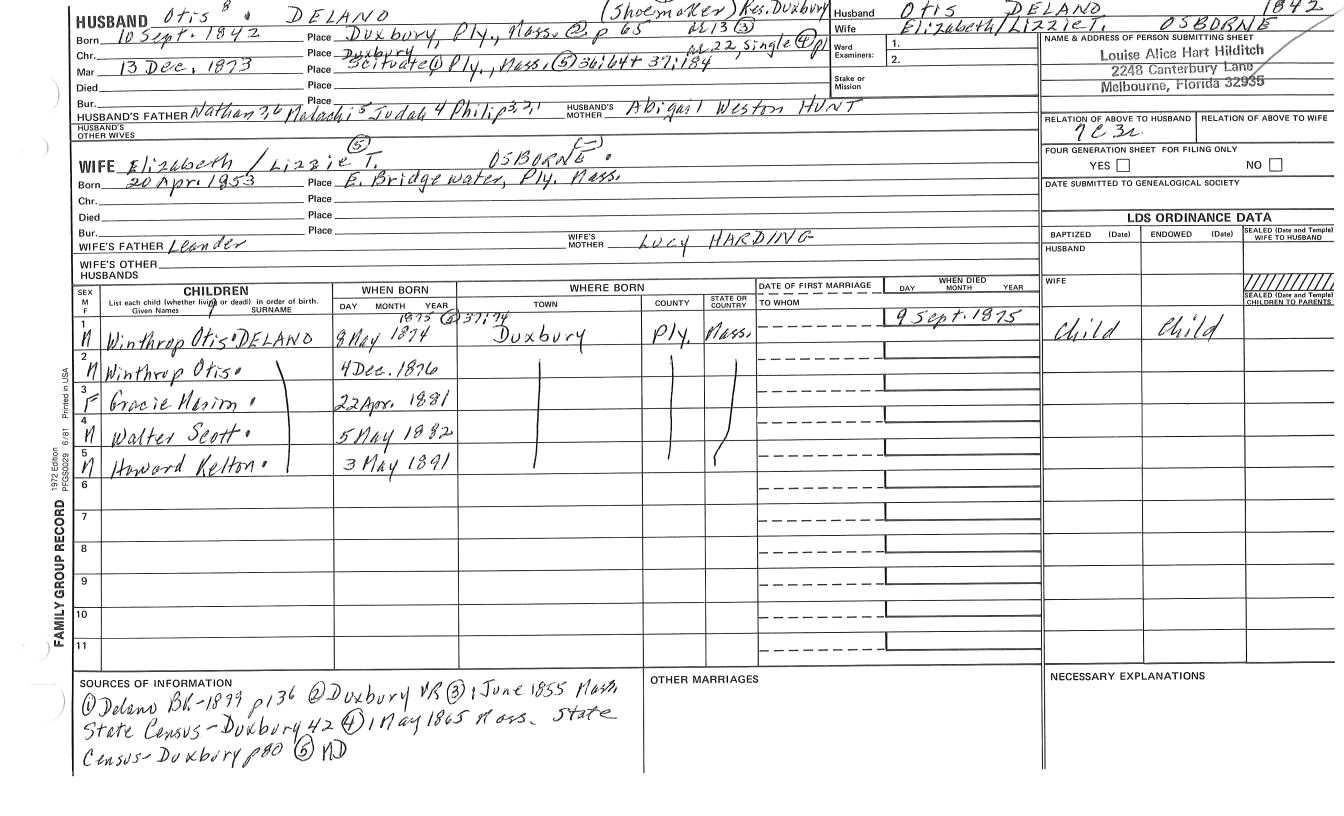 HUSBAND Otis 8 DELANO (Shoemaker) Res. Duxbury
Born 10 Sept. 1842 Place Duxbury, Ply., Mass. ② p 65 ae 13 ③
Chr. Place Duxbury ae 22, single ④ p
Mar 13 Dec. 1873 Place Scituate ① Ply., Mass. ⑤ 36:64 + 37:184
Died Place
Bur. Place
HUSBAND'S FATHER Nathan 7,6 Malachi 5 Judah 4 Philip 3,2,1 HUSBAND'S MOTHER Abigail Weston HUNT
HUSBAND'S OTHER WIVES
WIFE Elizabeth / Lizzie T. ⑤ OSBORNE (–)
Born 20 Apr. 1853 Place E. Bridgewater, Ply. Mass.
Chr. Place
Died Place
Bur. Place
WIFE'S FATHER Leander WIFE'S MOTHER Lucy HARDING
WIFE'S OTHER HUSBANDS
Husband Otis DELANO 1842
Wife Elizabeth/Lizzie T. OSBORNE
Ward Examiners: 1.
2.
Stake or Mission
NAME & ADDRESS OF PERSON SUBMITTING SHEET
Louise Alice Hart Hilditch
2248 Canterbury Lane
Melbourne, Florida 32935
RELATION OF ABOVE TO HUSBAND RELATION OF ABOVE TO WIFE
7C3r
FOUR GENERATION SHEET FOR FILING ONLY
YES NO
DATE SUBMITTED TO GENEALOGICAL SOCIETY
LDS ORDINANCE DATA
BAPTIZED (Date) ENDOWED (Date) SEALED (Date and Temple) WIFE TO HUSBAND
HUSBAND
WIFE
SEALED (Date and Temple) CHILDREN TO PARENTS
SEX M F CHILDREN WHEN BORN WHERE BORN DATE OF FIRST MARRIAGE WHEN DIED
List each child (whether living or dead) in order of birth. Given Names SURNAME DAY MONTH YEAR TOWN COUNTY STATE OR COUNTRY TO WHOM DAY MONTH YEAR
1875 ⑤ 37:74
1 M Winthrop Otis DELANO 8 May 1874 Duxbury Ply. Mass. 9 Sept. 1875 Child Child
2 M Winthrop Otis 4 Dec. 1876
3 F Gracie Marion 22 Apr. 1881
4 M Walter Scott 5 May 1882
5 M Howard Kelton 3 May 1891
6
7
8
9
10
11
FAMILY GROUP RECORD 1972 Edition PFGS0029 6/81 Printed in USA
SOURCES OF INFORMATION
① Delano BK-1899 p136 ② Duxbury VR ③ 1 June 1855 Mass.
State Census - Duxbury 42 ④ 1 May 1865 Mass. State
Census - Duxbury p80 ⑤ MD
OTHER MARRIAGES
NECESSARY EXPLANATIONS